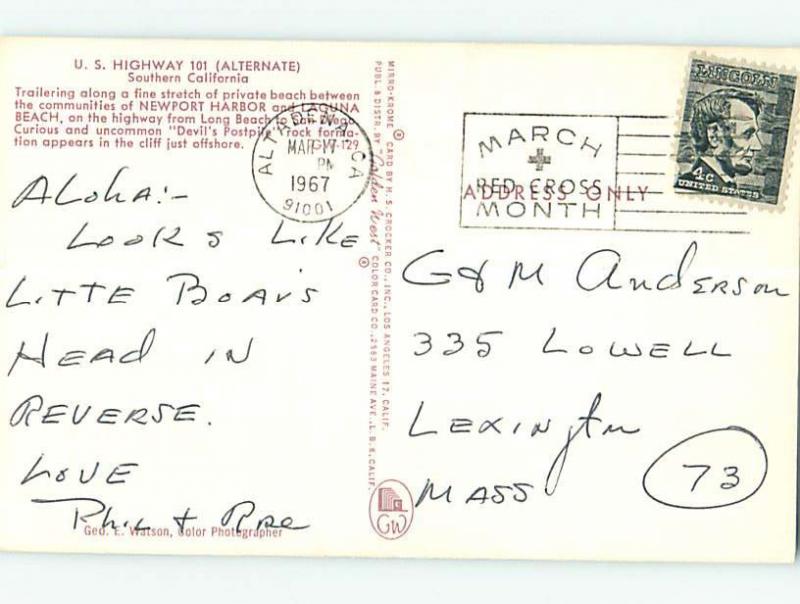 U. S. HIGHWAY 101 (ALTERNATE)
Southern California
Trailering along a fine stretch of private beach between
the communities of NEWPORT HARBOR and LAGUNA
BEACH, on the highway from Long Beach to San Diego.
Curious and uncommon "Devil's Postpile" rock forma-
tion appears in the cliff just offshore. GW-129
ALTADENA, CA
MAR 17
PM
1967
91001
MARCH
RED CROSS
MONTH
LINCOLN
4c
UNITED STATES
ADDRESS ONLY
Aloha:-
Looks Like
Litte Boar's
Head in
Reverse.
Love
Phil +
Geo. E. Watson, Color Photographer
MIRRO-KROME ® CARD BY H. S. CROCKER CO., INC., LOS ANGELES 17, CALIF.
PUBL. & DISTR. BY "Golden West" ® COLOR CARD CO., 2983 MAINE AVE., L. B. 6, CALIF.
GW
G & M Anderson
335 Lowell
Lexington
Mass
73